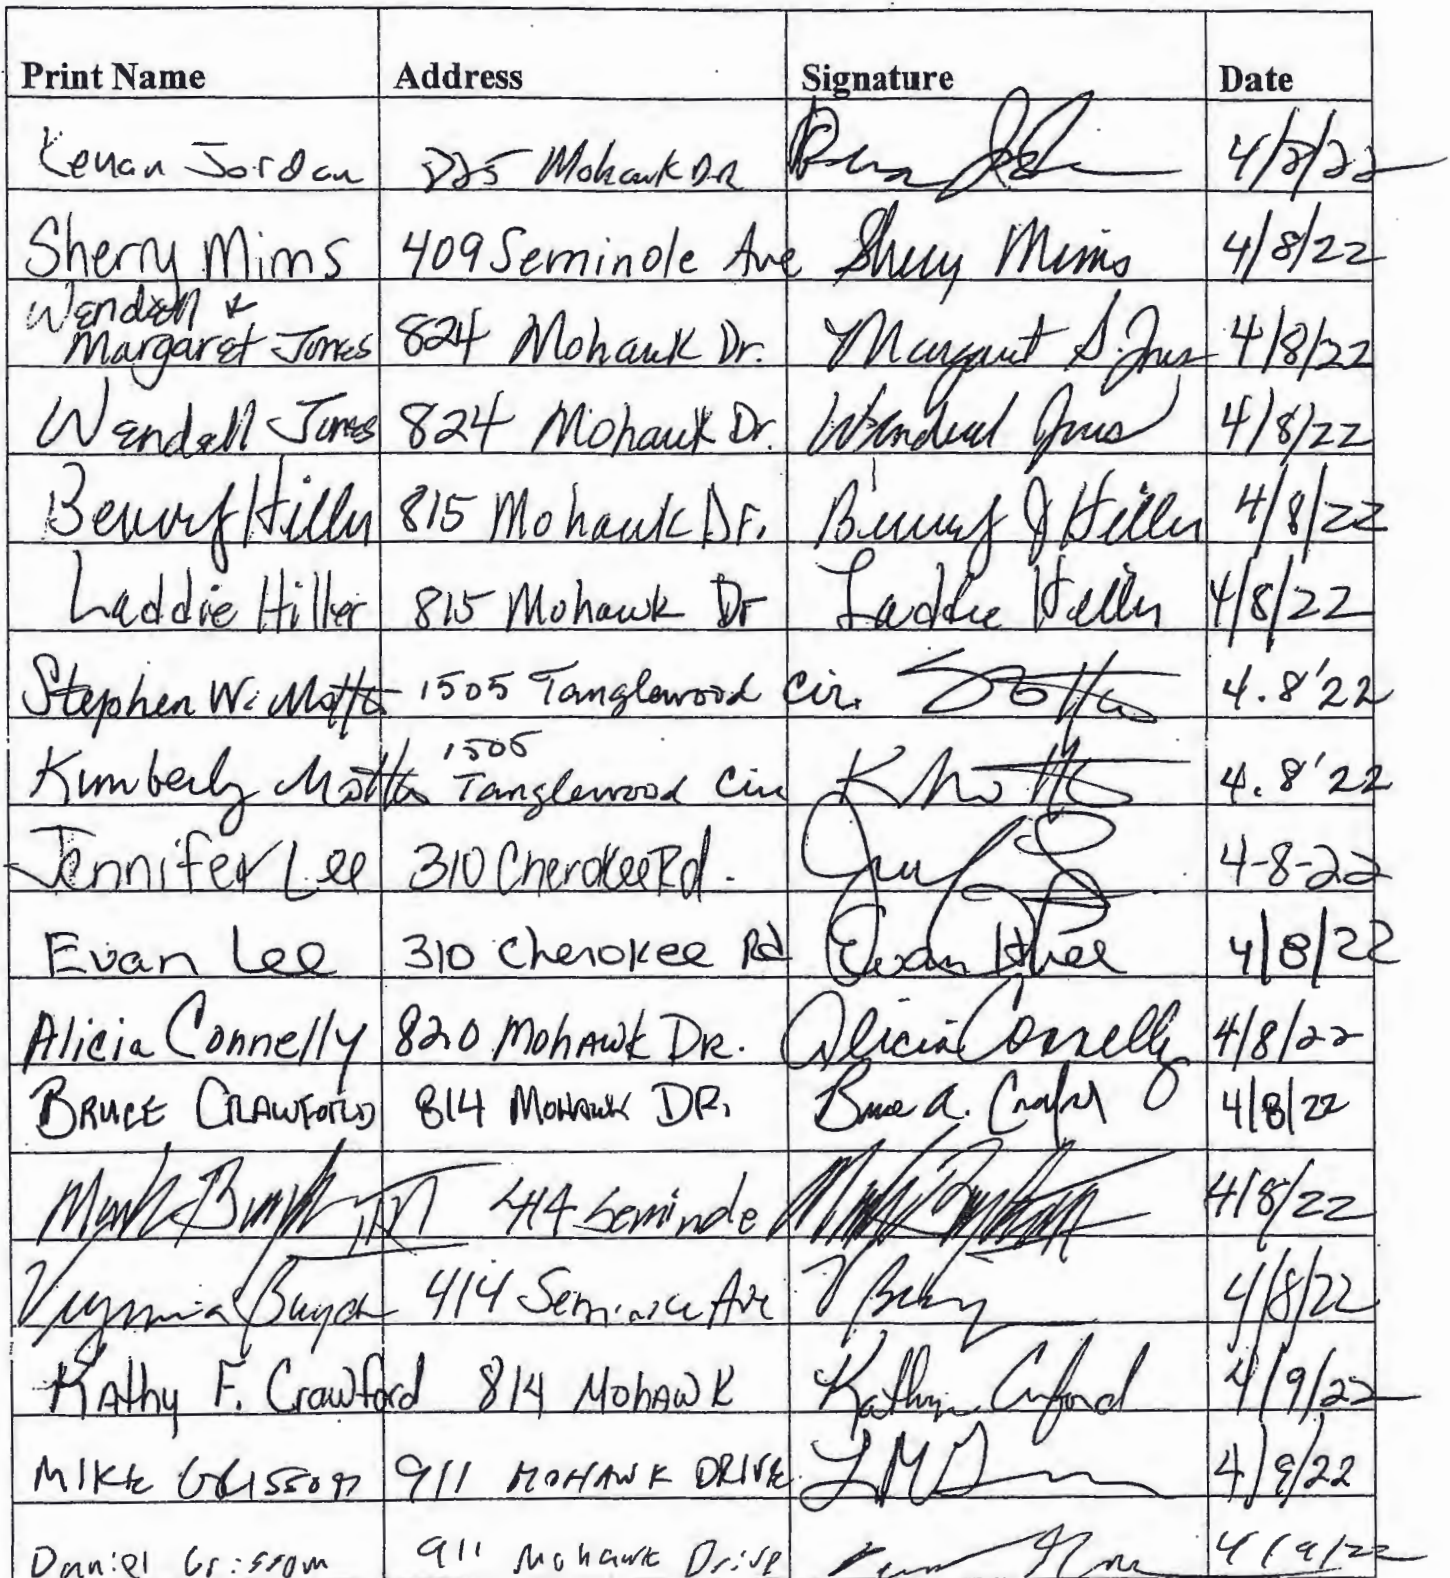 Print Name Address Signature Date
Kenan Jordan 225 Mohawk DR 4/8/22
Sherry Mims 409 Seminole Ave Sherry Mims 4/8/22
Wendell &
Margaret Jones 824 Mohawk Dr. Margaret S. Jones 4/8/22
Wendell Jones 824 Mohawk Dr. Wendell Jones 4/8/22
Benny Hiller 815 Mohawk Dr. Benny J Hiller 4/8/22
Laddie Hiller 815 Mohawk Dr Laddie Hiller 4/8/22
Stephen W. Motte 1505 Tanglewood Cir. 4.8'22
1505
Kimberly Motte Tanglewood Cir K Motte 4.8'22
Jennifer Lee 310 Cherokee Rd. 4-8-22
Evan Lee 310 Cherokee Rd Evan Lee 4/8/22
Alicia Connelly 820 Mohawk DR. Alicia Connelly 4/8/22
BRUCE CRAWFORD 814 MOHAWK DR. Bruce A. Crawford 4/8/22
Mark 414 Seminole 4/8/22
Virginia 414 Seminole Ave 4/8/22
Kathy F. Crawford 814 MOHAWK Kathy Crawford 4/9/22
MIKE GRISSOM 911 MOHAWK DRIVE 4/9/22
Daniel Grissom 911 Mohawk Drive 4/9/22